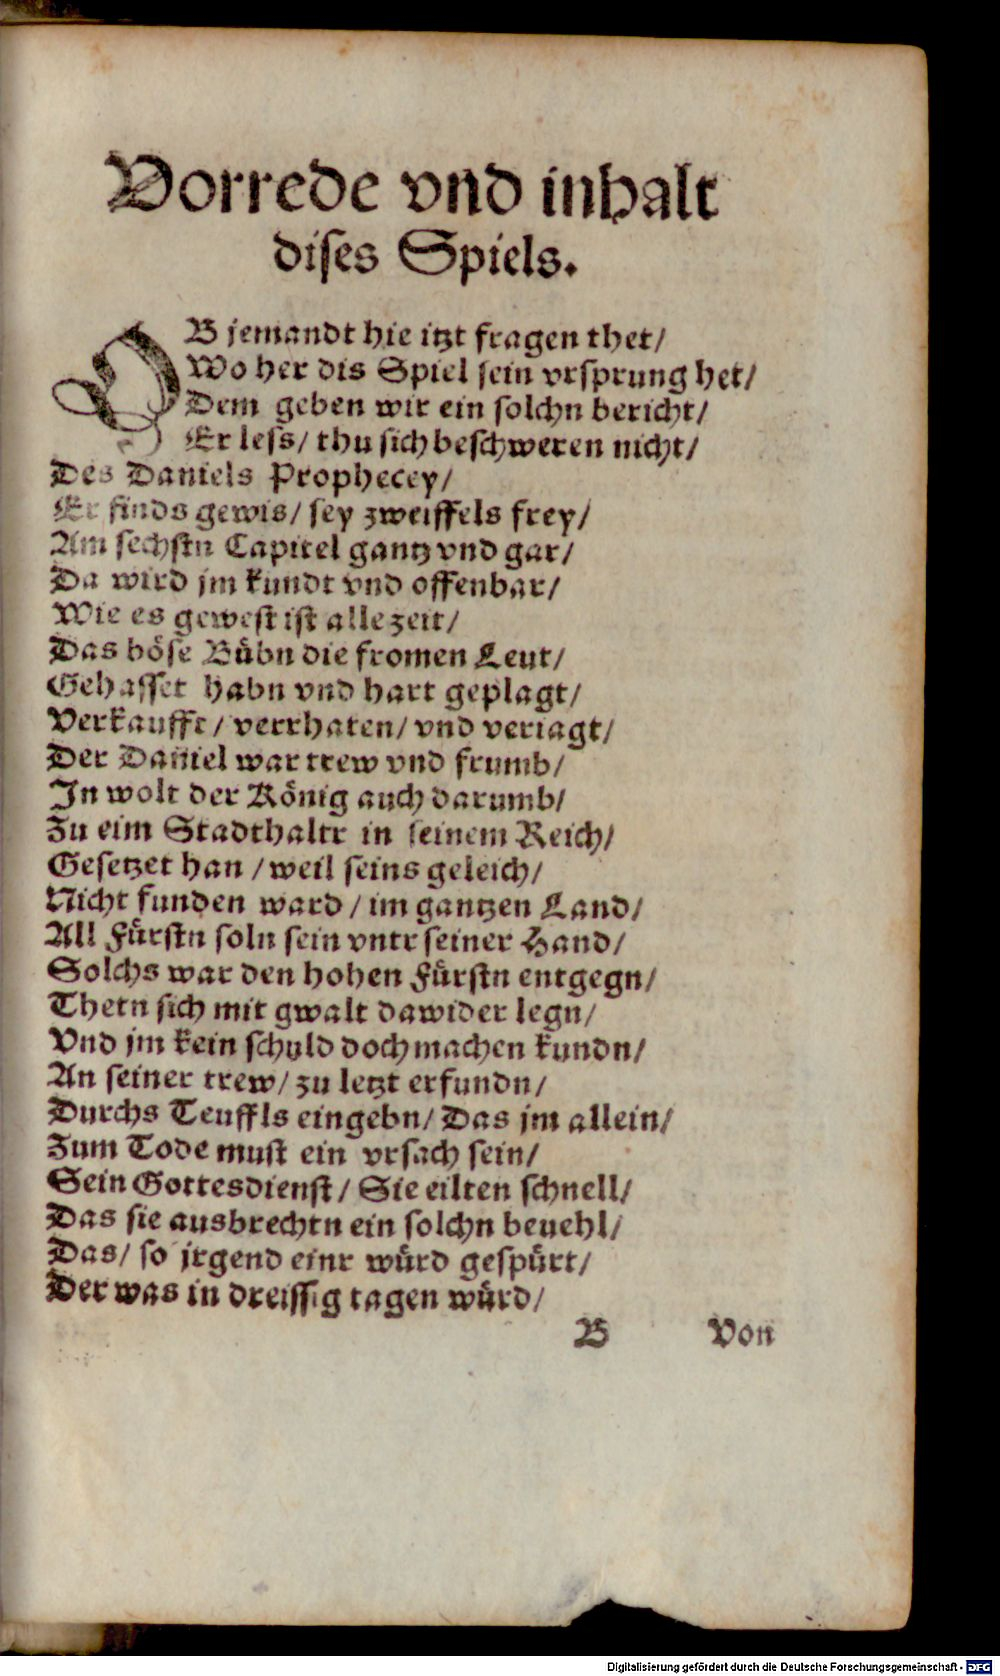 Vorrede vnd inhalt
dises Spiels.
OB jemandt hie itzt fragen thet/
Wo her dis Spiel sein vrsprung het/
Dem geben wir ein solchn bericht/
Er less/ thu sich beschweren nicht/
Des Daniels Prophecey/
Er finds gewis/ sey zweiffels frey/
Am sechstn Capitel gantz vnd gar/
Da wird jm kundt vnd offenbar/
Wie es gewest ist alle zeit/
Das böse Bübn die fromen Leut/
Gehasset habn vnd hart geplagt/
Verkaufft/ verrhaten/ vnd veriagt/
Der Daniel war trew vnd frumb/
In wolt der König auch darumb/
Zu eim Stadthaltr in seinem Reich/
Gesetzet han / weil seins geleich/
Nicht funden ward / im gantzen Land/
All Fürstn soln sein vntr seiner Hand/
Solchs war den hohen Fürstn entgegn/
Thetn sich mit gwalt dawider legn/
Vnd jm kein schuld doch machen kundn/
An seiner trew/ zu letzt erfundn/
Durchs Teuffls eingebn/ Das jm allein/
Zum Tode must ein vrsach sein/
Sein Gottesdienst/ Sie eilten schnell/
Das sie ausbrechtn ein solchn beuehl/
Das/ so jrgend einr würd gespürt/
Der was in dreissig tagen würd/
B Von
Digitalisierung gefördert durch die Deutsche Forschungsgemeinschaft - DFG